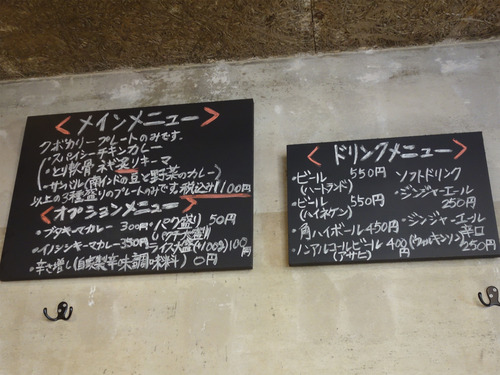 メインメニュー
クボカリープレートのみです。
・スパイシーチキンカレー
・とり軟骨ネギ塗りキーマ
・サンバル(南インドの豆と野菜のカレー)
以上の3種盛りのプレートのみです。税込み1100円
オプションメニュー
・ブタキーマカレー 300円 ・パク盛り 50円
・パクチー大盛り
・イノシシキーマカレー 350円 ・ライス大盛り(+100g) 100円
・辛さ増し(自家製辛味調味料) 0円
ドリンクメニュー
・ビール 550円
(ハートランド)
・ビール 550円
(ハイネケン)
・角ハイボール 450円
・ノンアルコールビール 400円
(アサヒ)
ソフトドリンク
・ジンジャーエール
250円
・ジンジャーエール
(ウィルキンソン) 辛口
250円